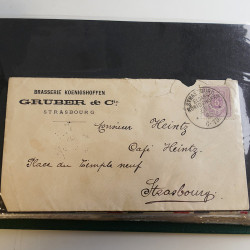 BRASSERIE KOENIGSHOFFEN
GRUBER & Cie
STRASBOURG
Monsieur Heintz
Café Heintz
Place du Temple neuf
Strasbourg